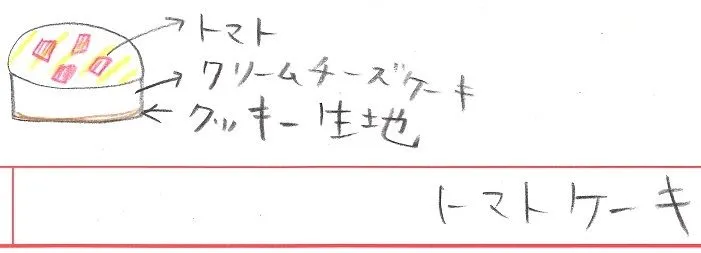 トマト
クリームチーズケーキ
クッキー生地
トマトケーキ